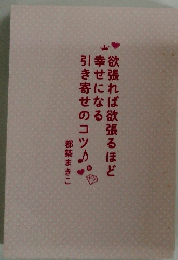 欲張れば欲張るほど
幸せになる
引き寄せのコツ♪
都築まきこ